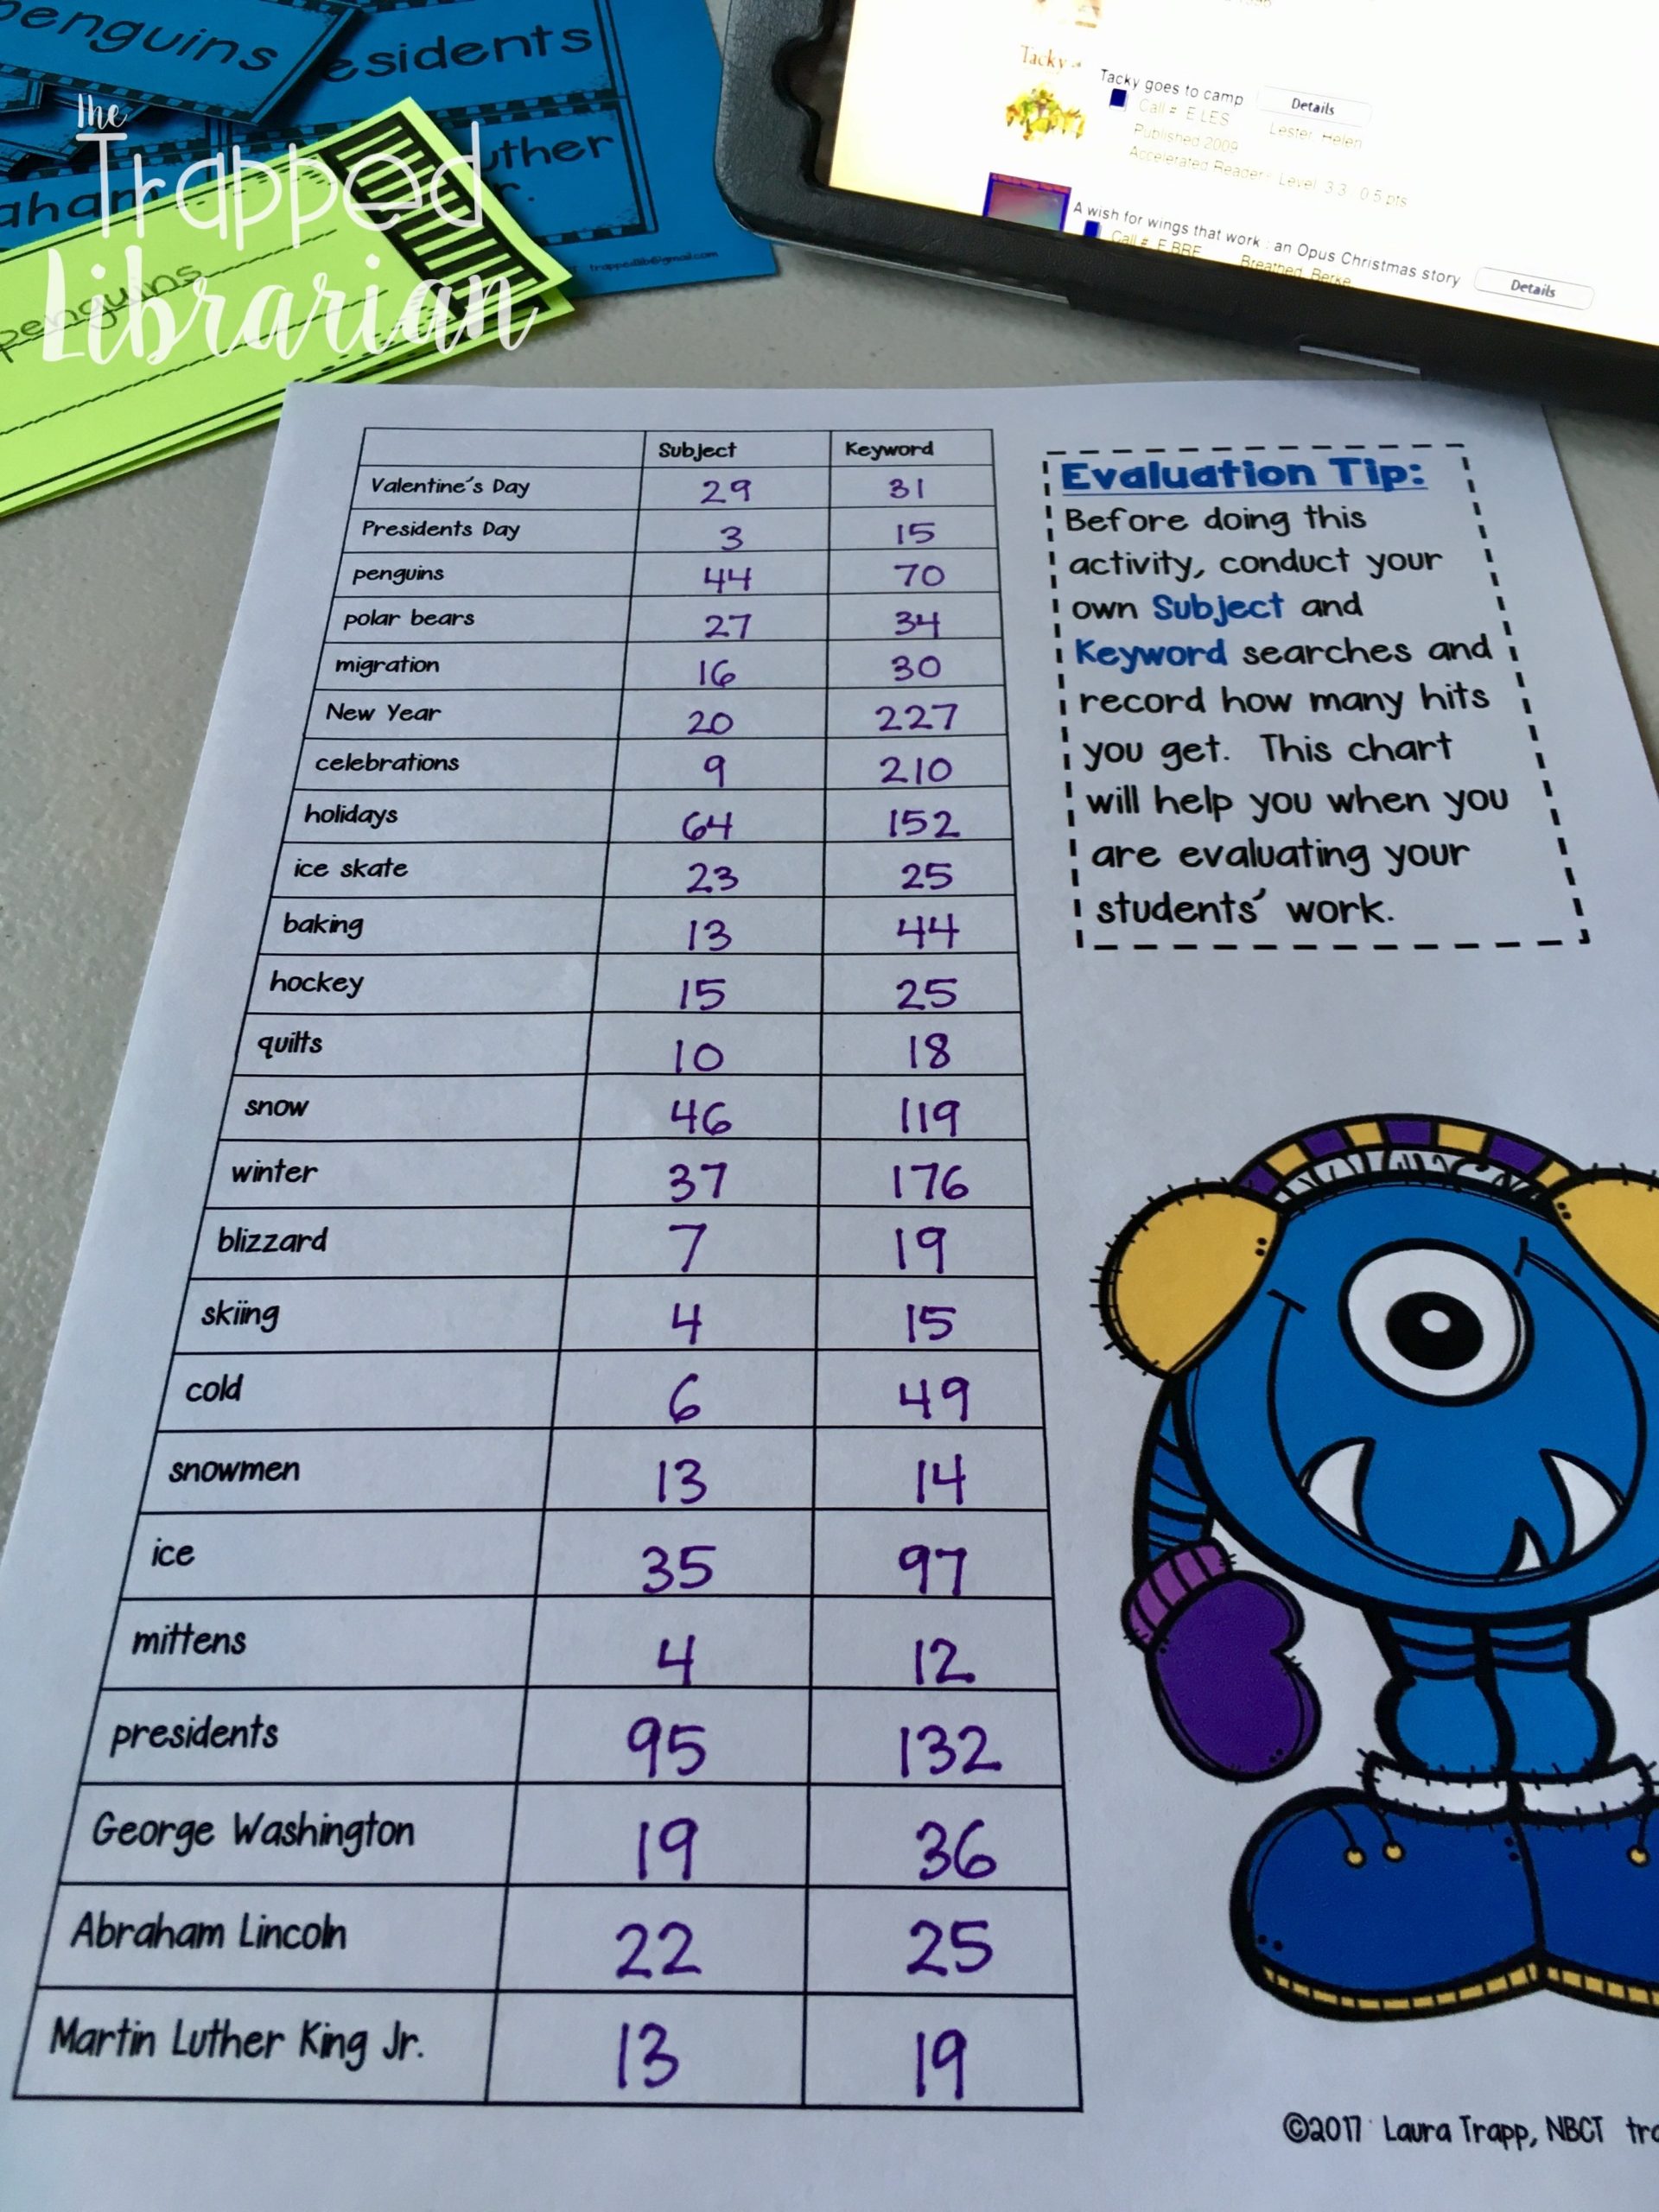 penguins
esidents
The
Trapped
Librarian
uther
r.
aham
penguins
trappedlib@gmail.com
Tacky
Tacky goes to camp
Details
Call #: E LES
Lester, Helen
Published 2009
Accelerated Reader: Level 3.3 0.5 pts
A wish for wings that work : an Opus Christmas story
Details
Call #: E BRE
Breathed, Berke
Subject Keyword
Valentine's Day 29 31
Presidents Day 3 15
penguins 44 70
polar bears 27 34
migration 16 30
New Year 20 227
celebrations 9 210
holidays 64 152
ice skate 23 25
baking 13 44
hockey 15 25
quilts 10 18
snow 46 119
winter 37 176
blizzard 7 19
skiing 4 15
cold 6 49
snowmen 13 14
ice 35 97
mittens 4 12
presidents 95 132
George Washington 19 36
Abraham Lincoln 22 25
Martin Luther King Jr. 13 19
Evaluation Tip:
Before doing this
activity, conduct your
own Subject and
Keyword searches and
record how many hits
you get. This chart
will help you when you
are evaluating your
students' work.
©2017 Laura Trapp, NBCT